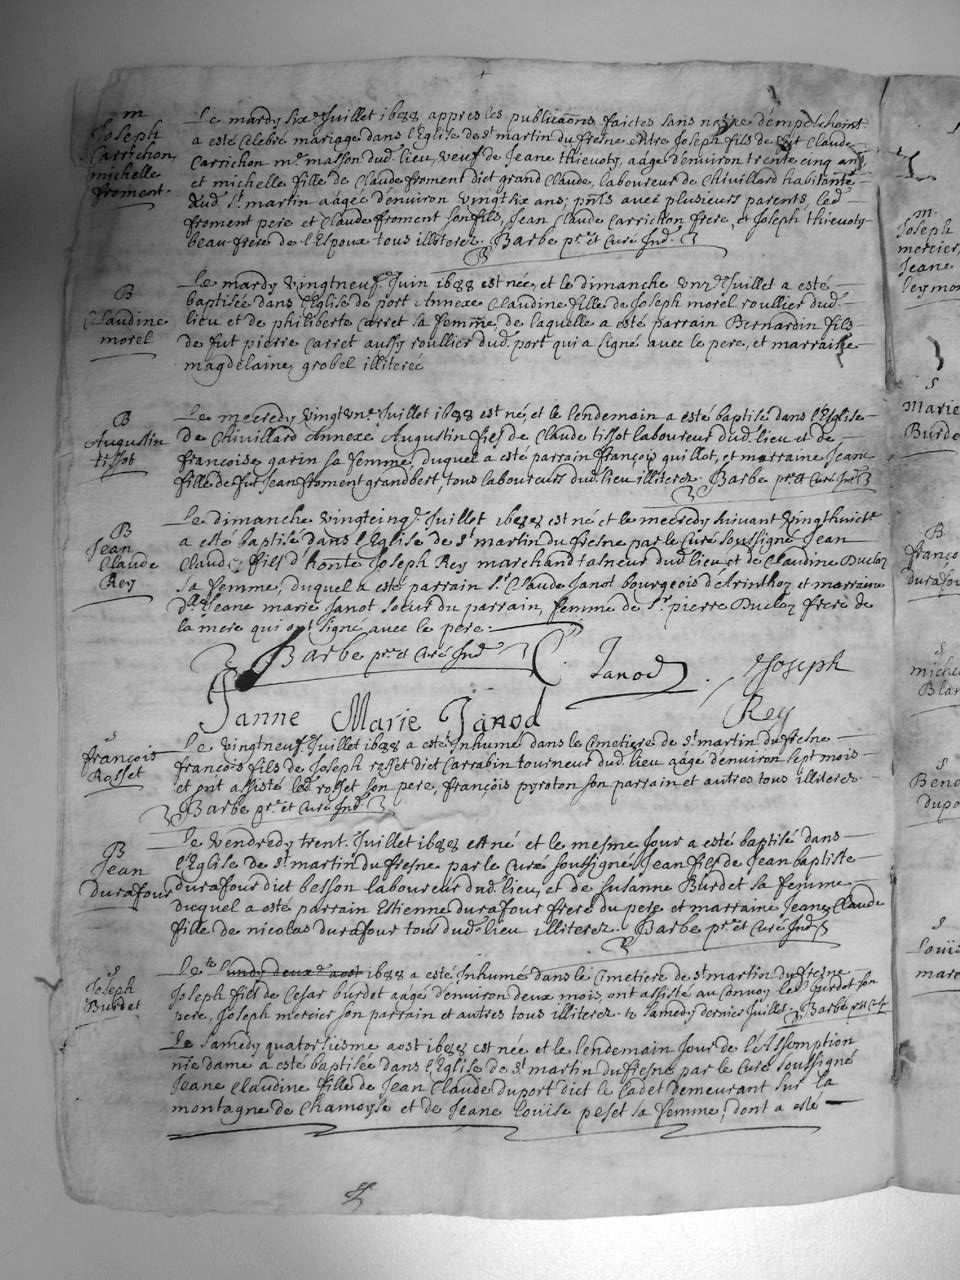 m
Joseph
Carrichon
michelle
froment
Le mardy six.e Juillet 1688 appres les publicaons faictes sans
a esté celebré mariage dans l'Eglise de st martin du fresne entre Joseph fils de Claude
Carrichon m.e masson dud. lieu, veuf de Jeane thievoty, aagé d'environ trente cinq ans
et michelle fille de Claude froment dict grand Claude, laboureur de Chivillard habitante
aud. st martin aagée d'environ vingt six ans; pnts avec plusieurs parents, led.
froment pere et Claude froment son fils, Jean Claude Carrichon frere, et Joseph thievoty
beau frere de l'Espoux tous illiterez. Barbe pr et Curé Ind.
B
Claudine
morel
Le mardy vingtneuf Juin 1688 est née, et le dimanche Juillet a esté
baptisée dans l'Eglise de port Annexe Claudine fille de Joseph morel roullier dud.
lieu et de philiberte Carret sa femme, de laquelle a esté parrain Bernardin fils
de fut pierre Carret aussy roullier dud. port qui a signé avec le pere, et marraine
magdelaine grobel illiterée
B
Augustin
tissot
Le mecredy vingtun.e Juillet 1688 est né, et le lendemain a esté baptisé dans l'Eglise
de Chivillard Annexe Augustin fils de Claude tissot laboureur dud. lieu et de
françoise garin sa femme, duquel a esté parrain françois quillot, et marraine Jeane
fille de fut Jean froment grandbert, tous laboureurs dud. lieu illiterez. Barbe pr et Curé Ind.
B
Jean
Claude
Rey
Le dimanche vingtcinq.e Juillet 1688 est né et le mecredy suivant vingthuict.e
a esté baptisé dans l'Eglise de st martin du fresne par le Curé soussigné Jean
Claude fils d'honte Joseph Rey marchand taneur dud. lieu et de Claudine Ducloz
sa femme, duquel a esté parrain sr. Claude Janot bourgeois d'Arinthoz et marraine
d.lle Jeane marie Janot soeur du parrain, femme de sr. pierre Ducloz frere de
la mere qui ont signé avec le pere.
Barbe pr et Curé Ind.
C. Janod
Joseph
Rey
Janne Marie Janod
s
françois
Rosset
Le vingtneuf Juillet 1688 a esté Inhumé dans le Cmetiere de st martin du fresne
françois fils de Joseph rosset dict Carrabin tourneur dud. lieu aagé d'environ sept mois
et ont assisté led. rosset son pere, françois pyroton son parrain et autres tous illiterez
Barbe pr et Curé Ind.
B
Jean
Durafour
Le vendredy trent.e Juillet 1688 est né et le mesme Jour a esté baptisé dans
l'Eglise de st martin du fresne par le Curé soussigné Jean fils de Jean baptiste
durafour dict besson laboureur dud. lieu, et de Susanne Burdet sa femme
duquel a esté parrain Estienne durafour frere du pere et marraine Jeane Claude
fille de nicolas durafour tous dud. lieu illiterez. Barbe pr et Curé Ind.
s
Joseph
Burdet
Le lundy deux.e aost 1688 a esté Inhumé dans le Cmetiere de st martin du fresne
Joseph fils de Cesar burdet aagé d'environ deux mois, ont assisté au Convoy led. burdet son
pere, Joseph mercier son parrain et autres tous illiterez. le samedy dernier Juillet. Barbe pr et C.
Le samedy quatorsiesme aost 1688 est née et le lendemain Jour de l'Assomption
nre dame a esté baptisée dans l'Eglise de st martin du fresne par le Curé soussigné
Jeane Claudine fille de Jean Claude duport dict le Cadet demeurant sur la
montagne de Chamoyse et de Jeane Louise peset sa femme, dont a esté
m
Joseph
mercier
Jeane
s
Marie
Burde
B
franço
durafou
s
miche
Blan
s
Beno
dupo
s
Louis
marc